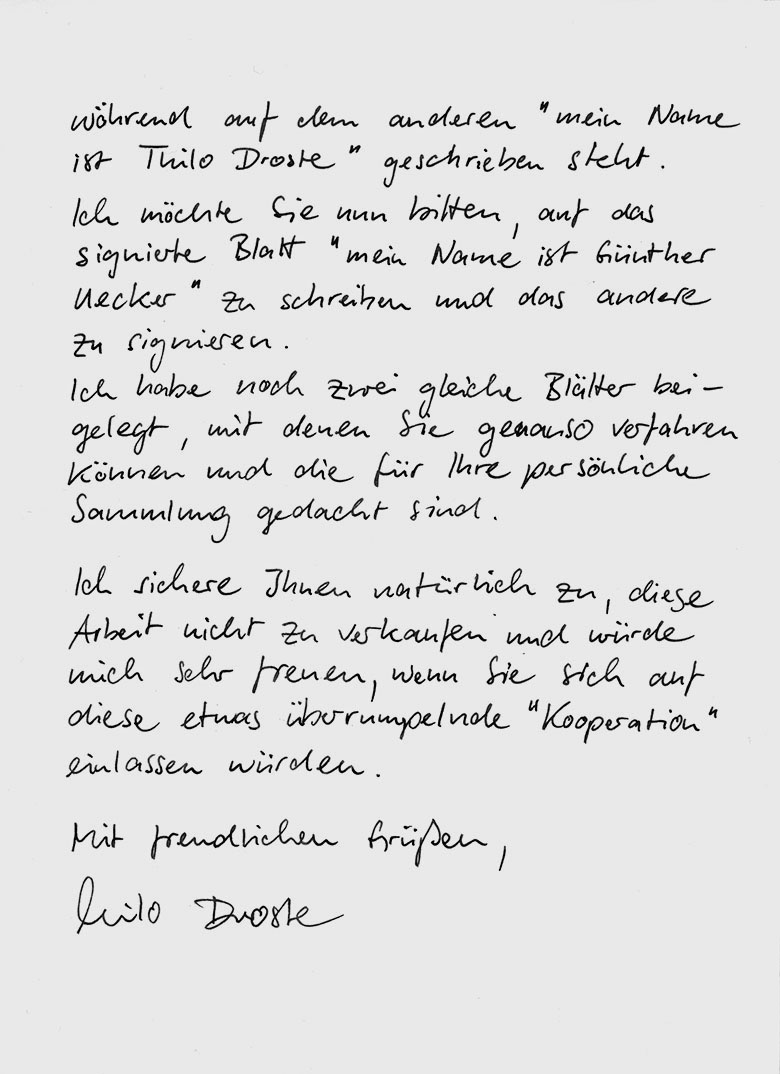 während auf dem anderen "mein Name
ist Thilo Droste" geschrieben steht.
Ich möchte Sie nun bitten, auf das
signierte Blatt "mein Name ist Günther
Uecker" zu schreiben und das andere
zu signieren.
Ich habe noch zwei gleiche Blätter bei-
gelegt, mit denen Sie genauso verfahren
können und die für Ihre persönliche
Sammlung gedacht sind.
Ich sichere Ihnen natürlich zu, diese
Arbeit nicht zu verkaufen und würde
mich sehr freuen, wenn Sie sich auf
diese etwas überrumpelnde "Kooperation"
einlassen würden.
Mit freundlichen Grüßen,
Thilo Droste